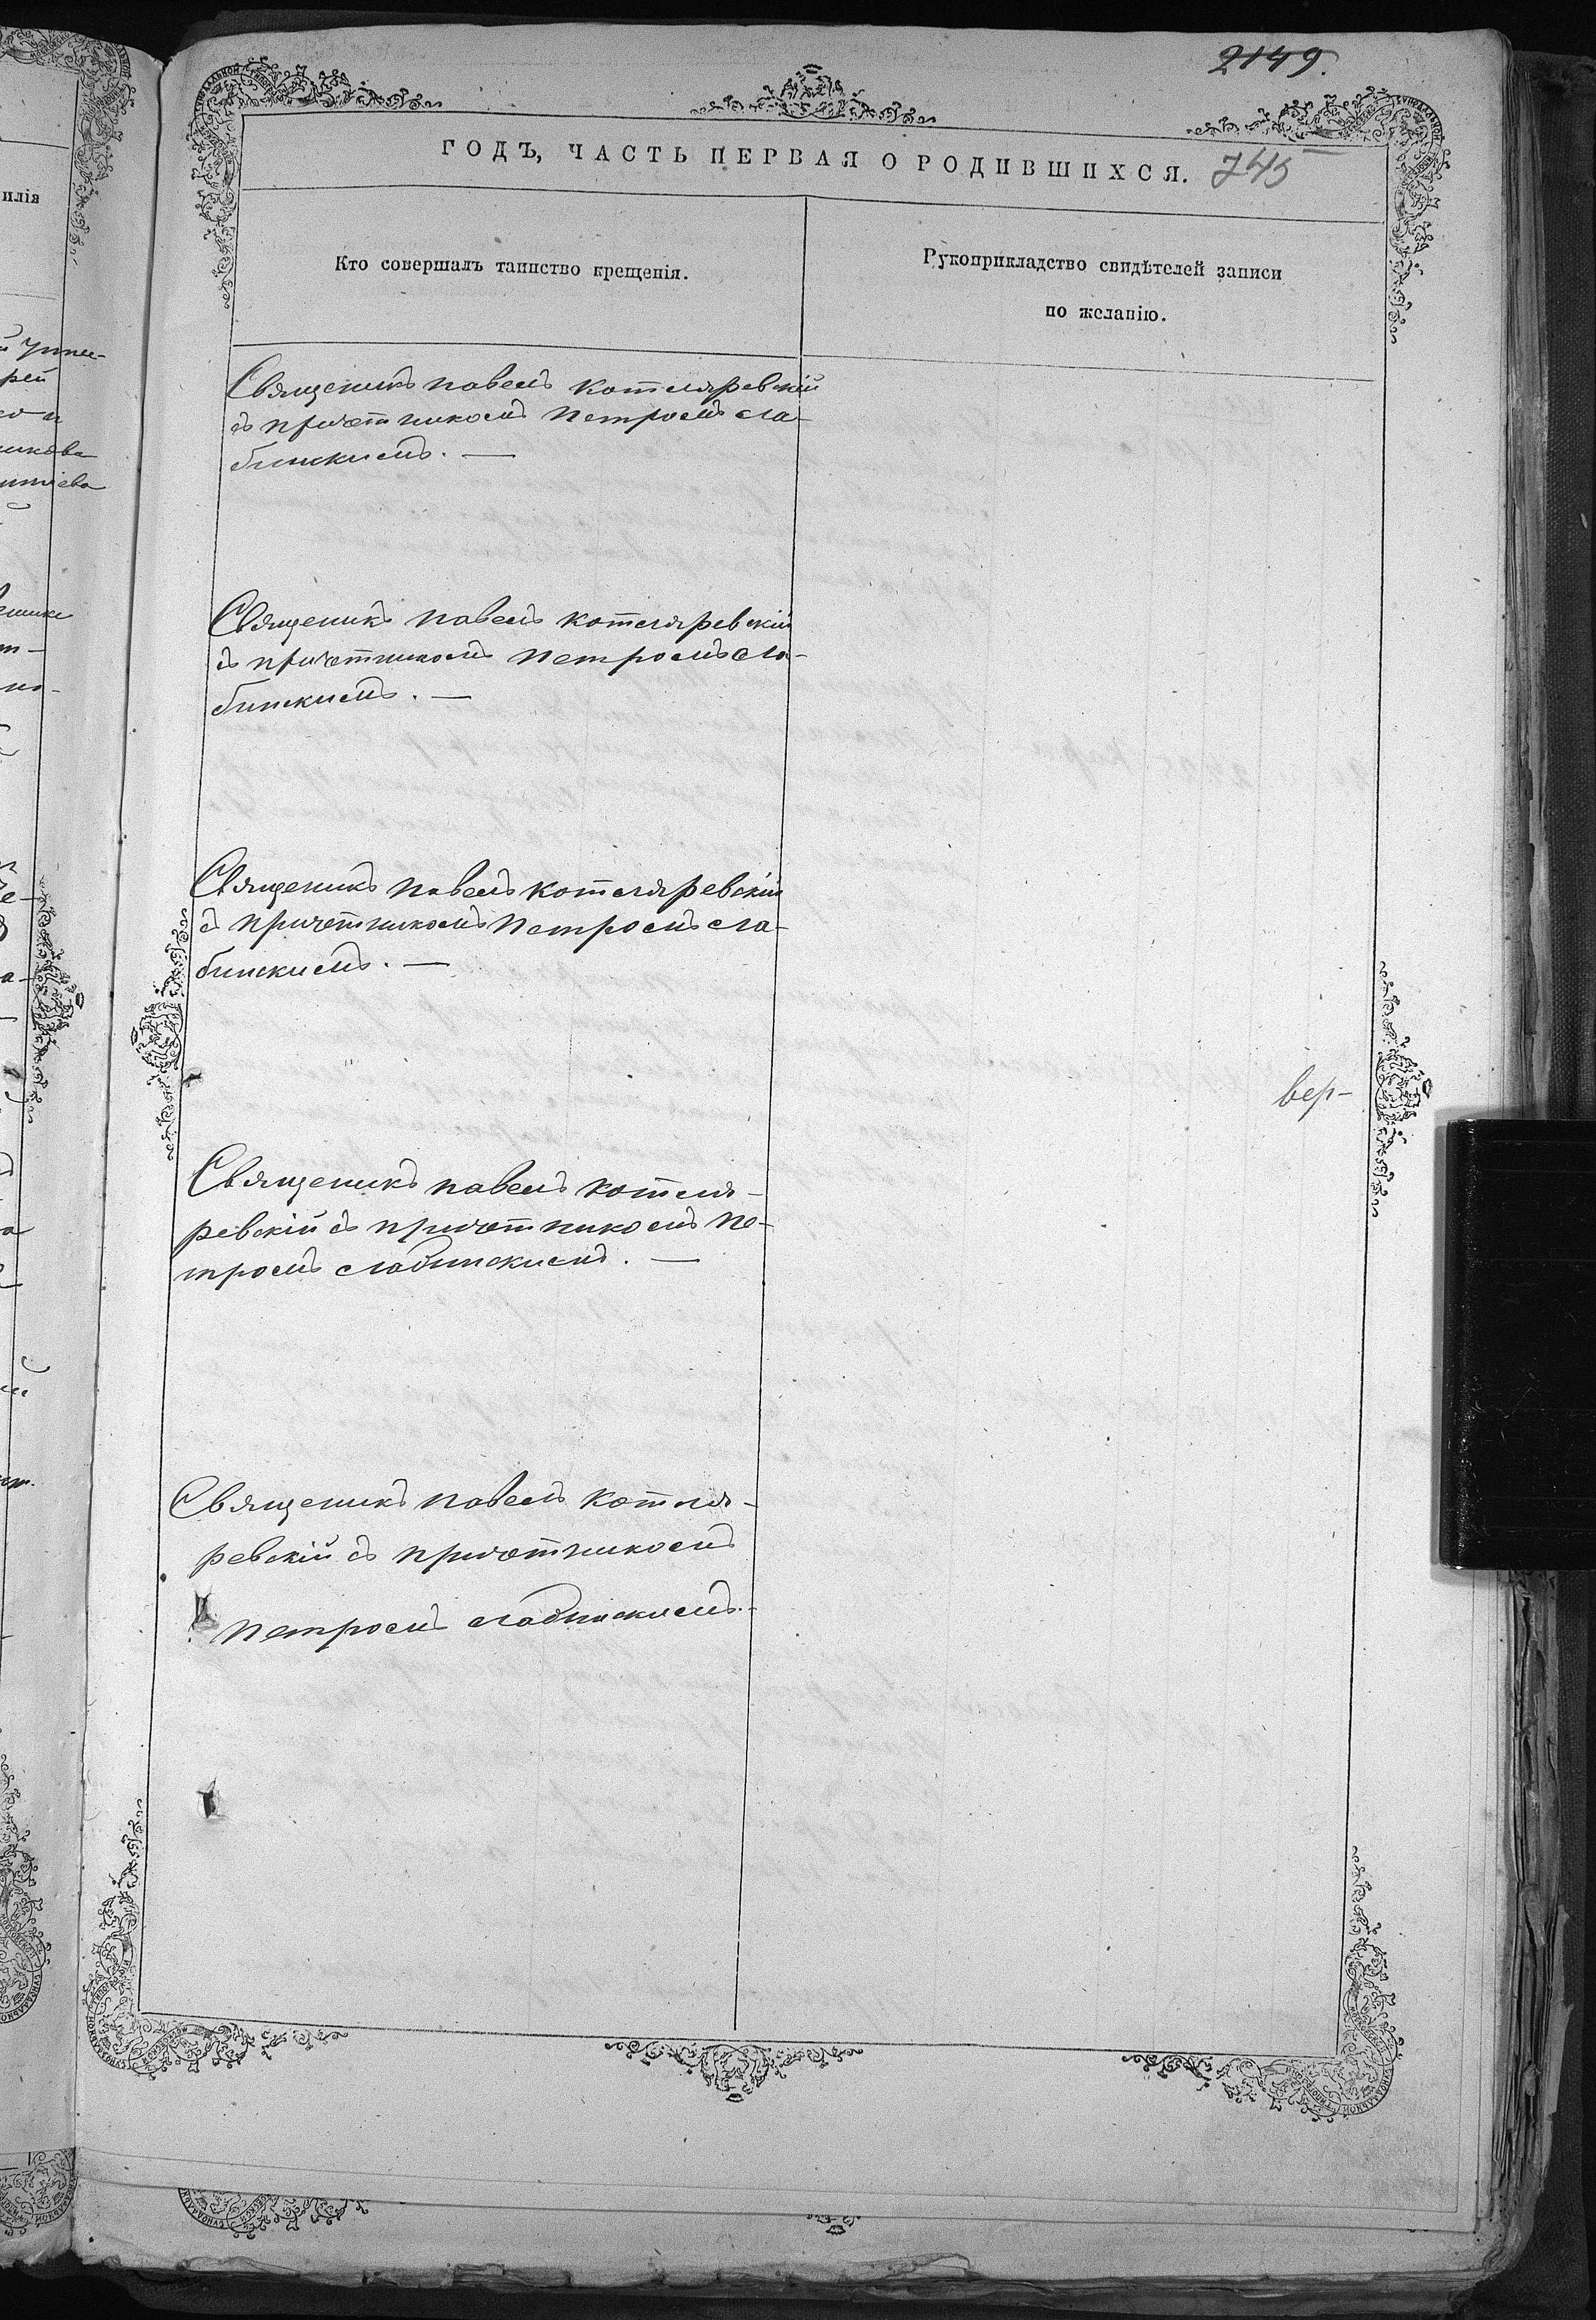 2149.
ГОДЪ, ЧАСТЬ ПЕРВАЯ О РОДИВШИХСЯ. 745
Кто совершалъ таинство крещенія.
Рукоприкладство свидѣтелей записи
по желанію.
Священикъ павелъ котляревскій
съ причетникомъ петромъ сла-
бинскимъ. —
Священикъ павелъ котляревскій
съ причетникомъ петромъ сла-
бинскимъ. —
Священикъ павелъ котляревскій
съ причетникомъ петромъ сла-
бинскимъ. —
вер-
Священикъ павелъ котля-
ревскій съ причетникомъ пе-
тромъ слабинскимъ. —
Священикъ павелъ котля-
ревскій съ причетникомъ
петромъ слабинскимъ.-